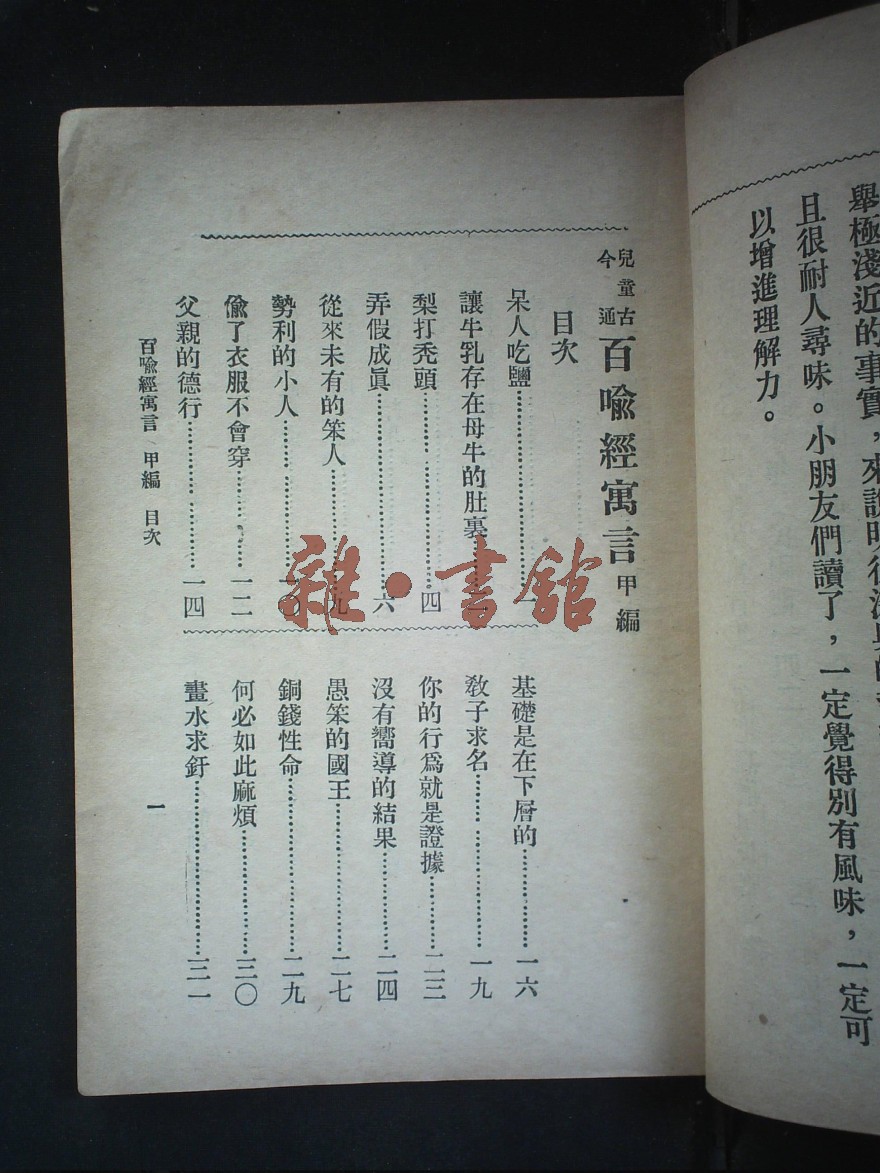 舉極淺近的事實，來說明
且很耐人尋味。小朋友們讀了，一定覺得別有風味，一定可
以增進理解力。
兒童古今通
百喩經寓言 甲編
目次
呆人吃鹽……一
讓牛乳存在母牛的肚裏……二
梨打禿頭……四
弄假成眞……六
從來未有的笨人……九
勢利的小人……一〇
偸了衣服不會穿……一二
父親的德行……一四
基礎是在下層的……一六
敎子求名……一九
你的行爲就是證據……二三
沒有嚮導的結果……二四
愚笨的國王……二七
銅錢性命……二九
何必如此麻煩……三〇
畫水求釪……三一
百喩經寓言 甲編 目次
一
雜·書館